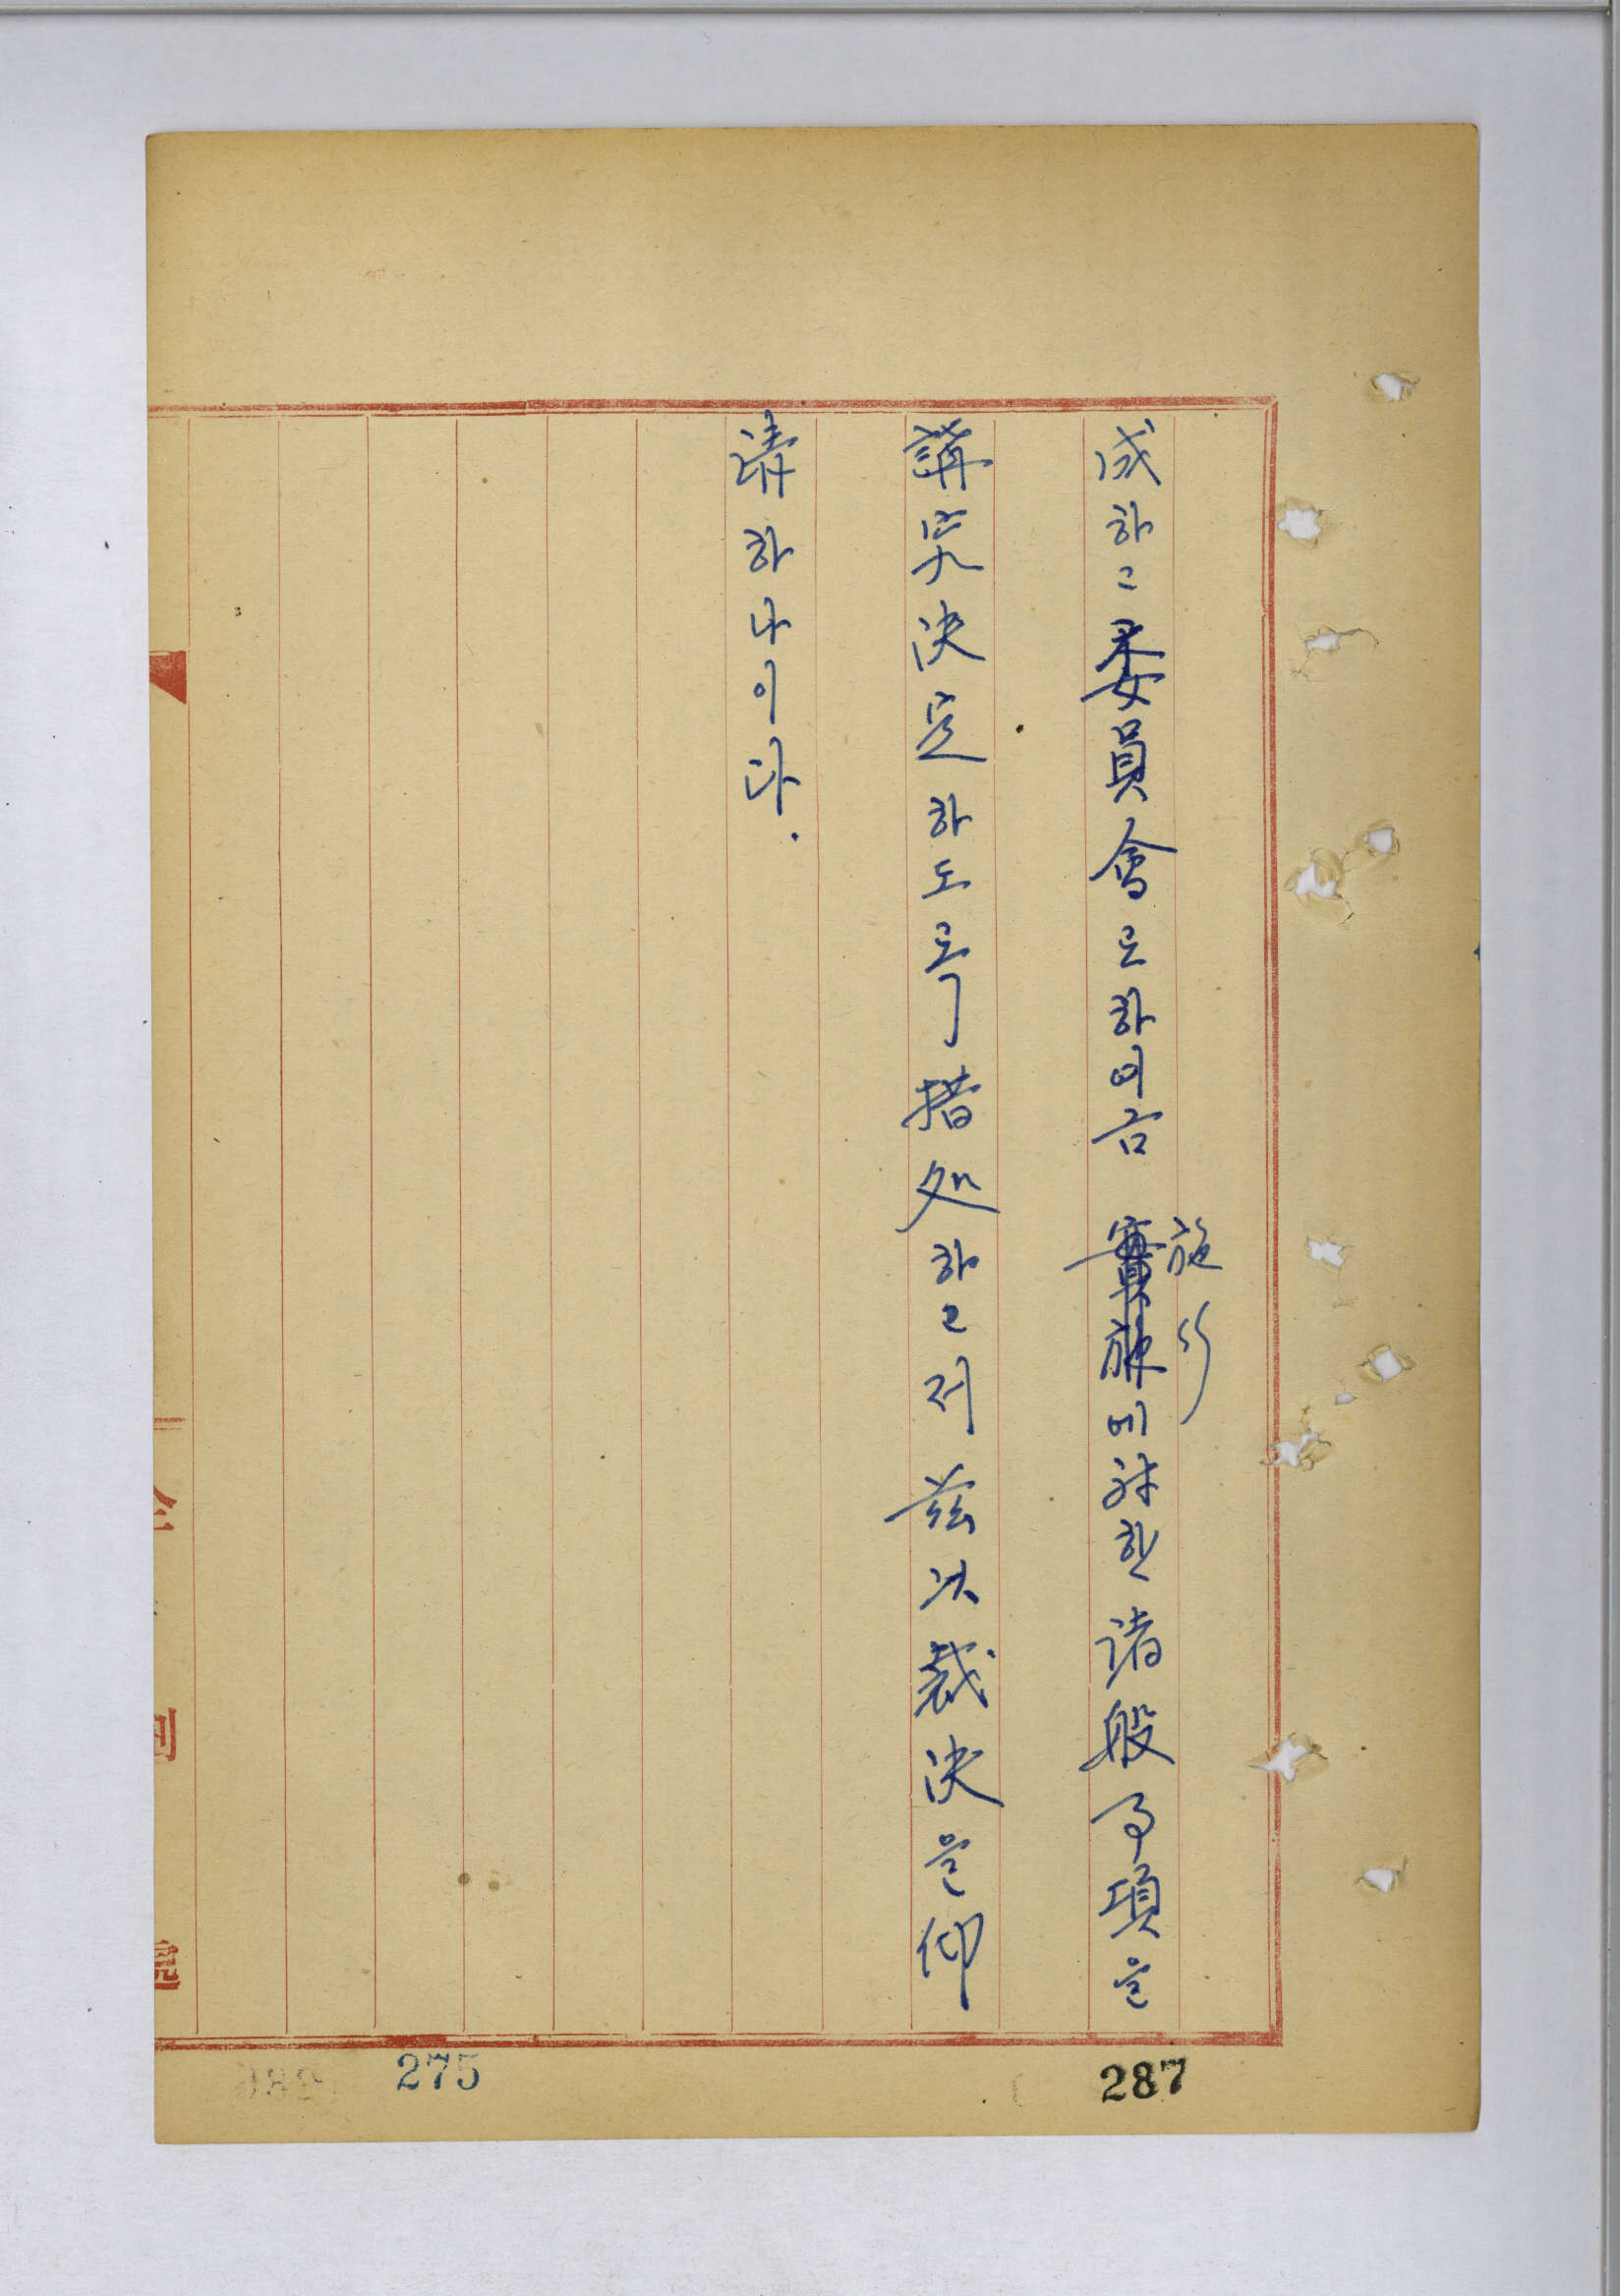 施行
成하고 委員會로하여금 實施에対한 諸般事項을
講究決定하도록 措処하고저 玆以裁決을仰
請하나이다.
287
275